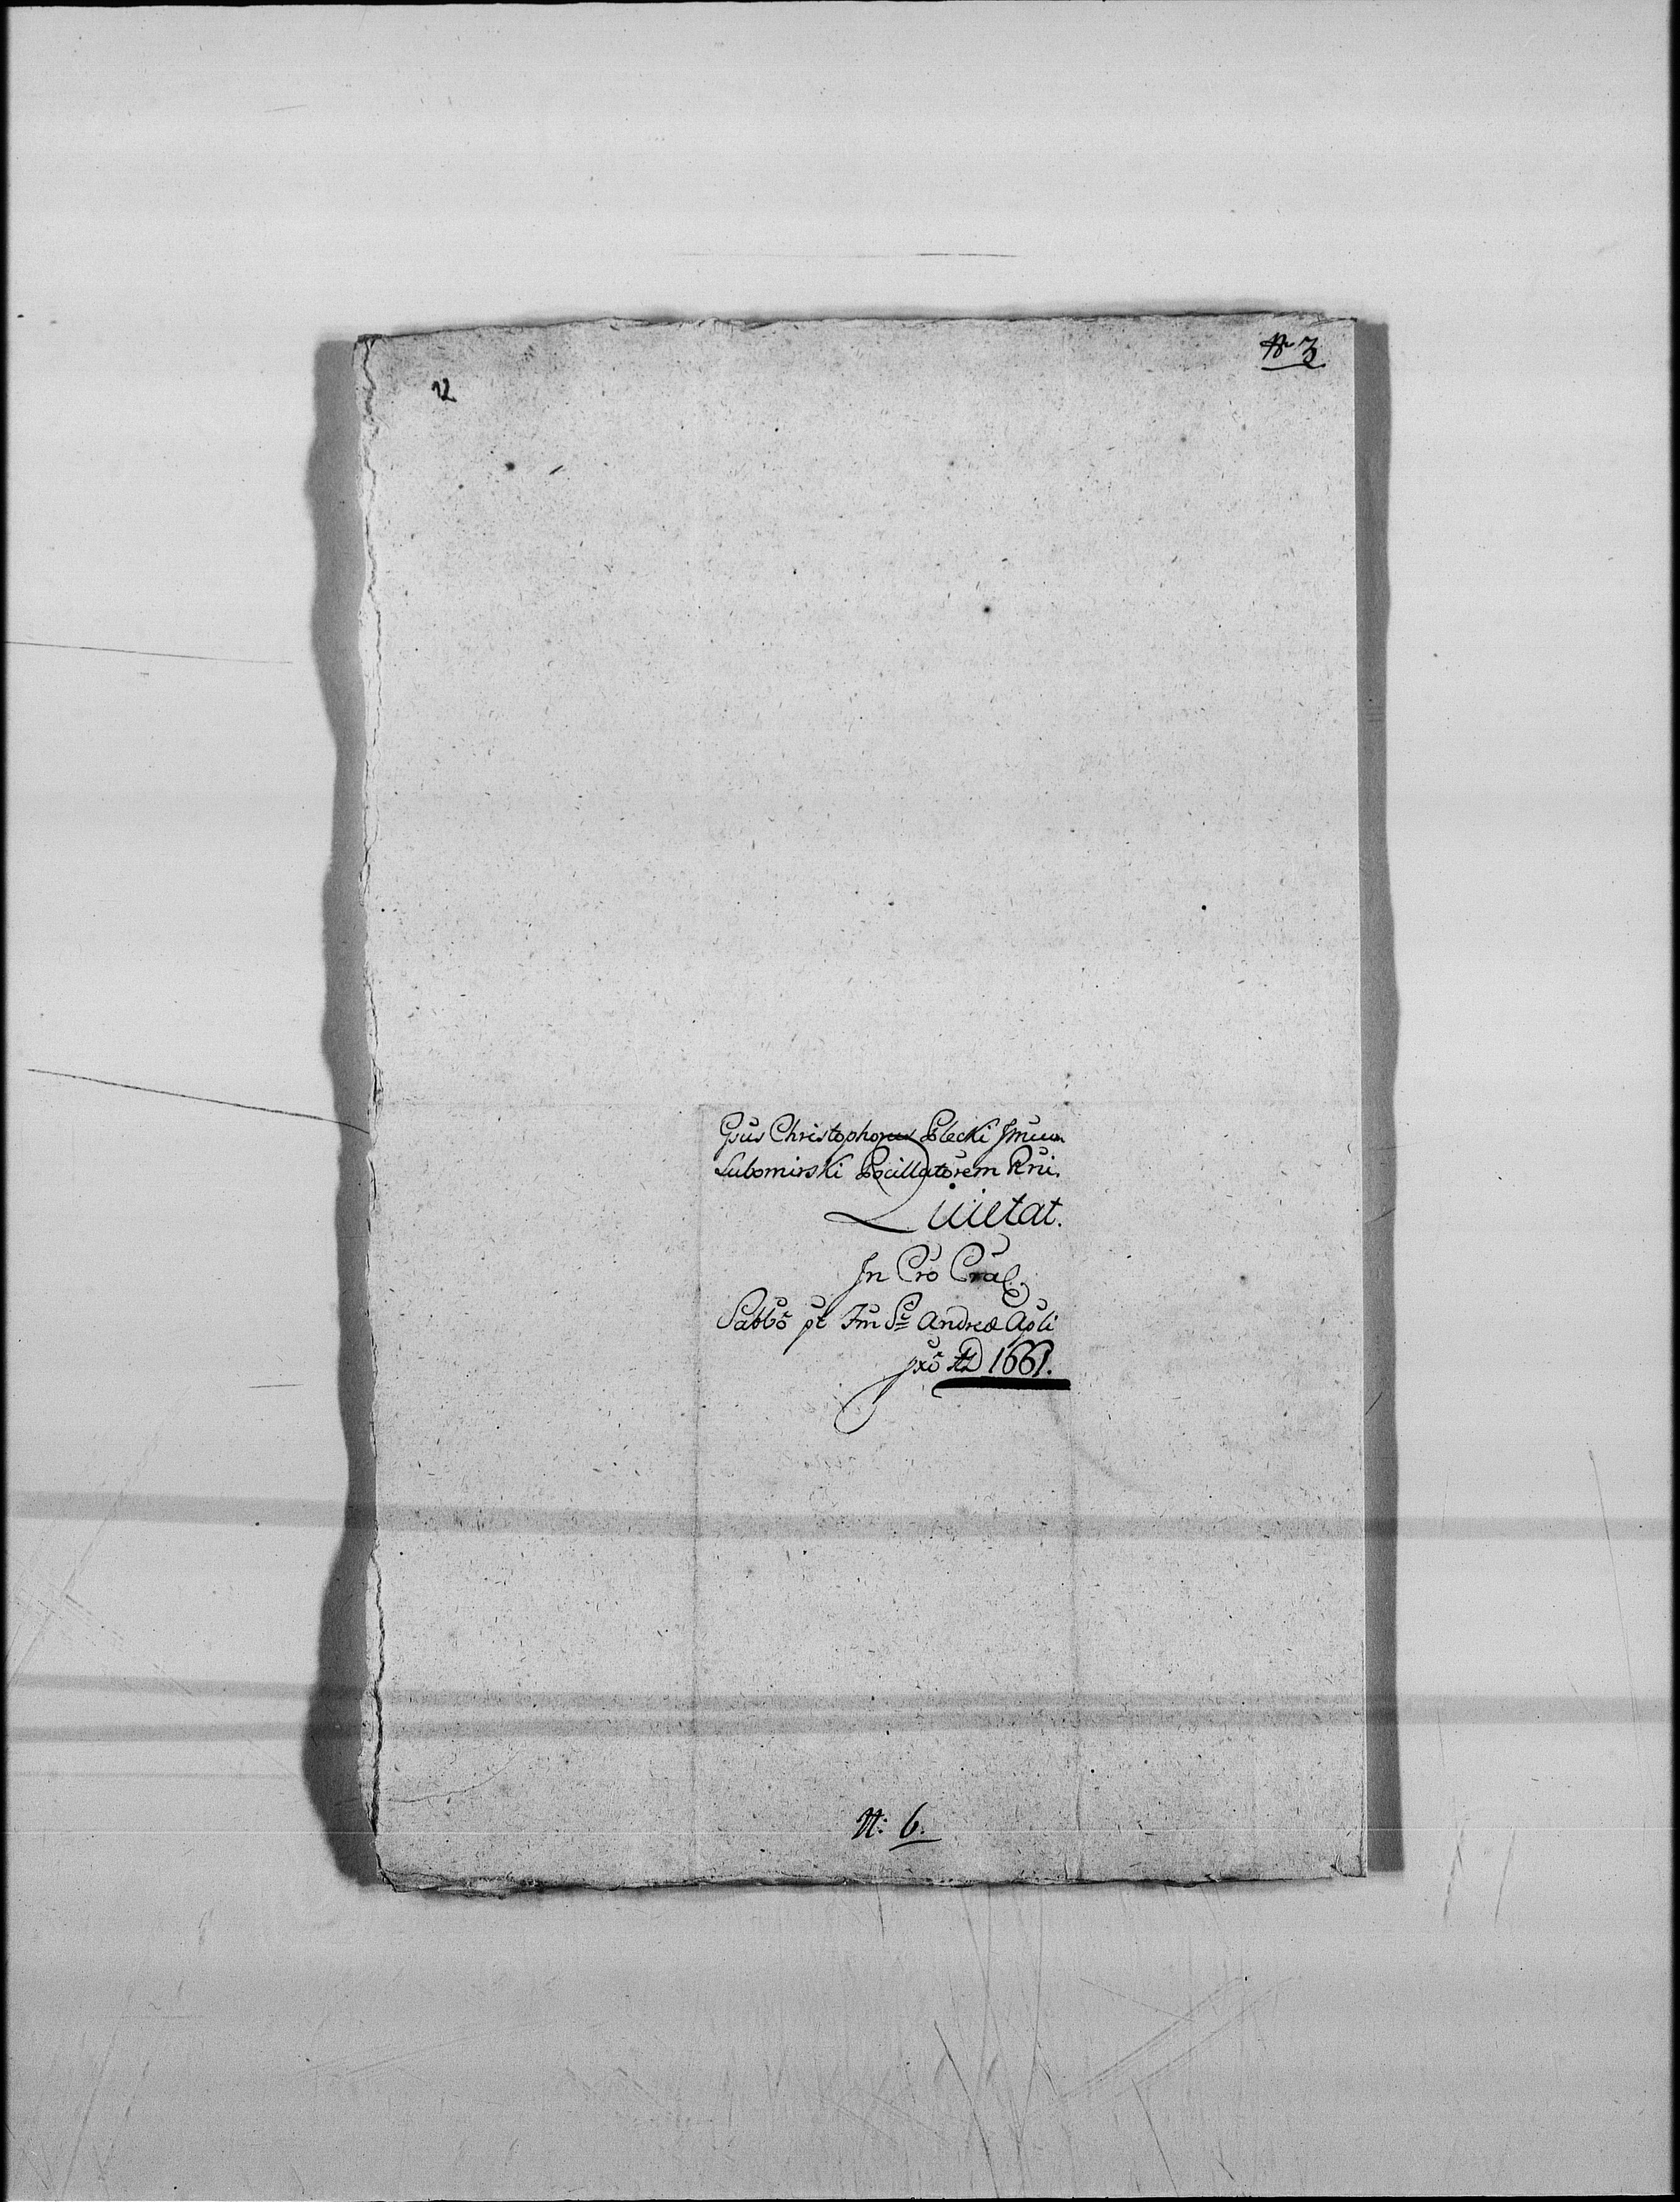 N 3
12
Gsus Christophorus Polecki Jmum
Lubomirski Pocillatorem Rni.
Quietat.
In Cro Cral.
Sabbo pt Fm Sc Andreæ Apli
pxo AD 1661.
N: 6.